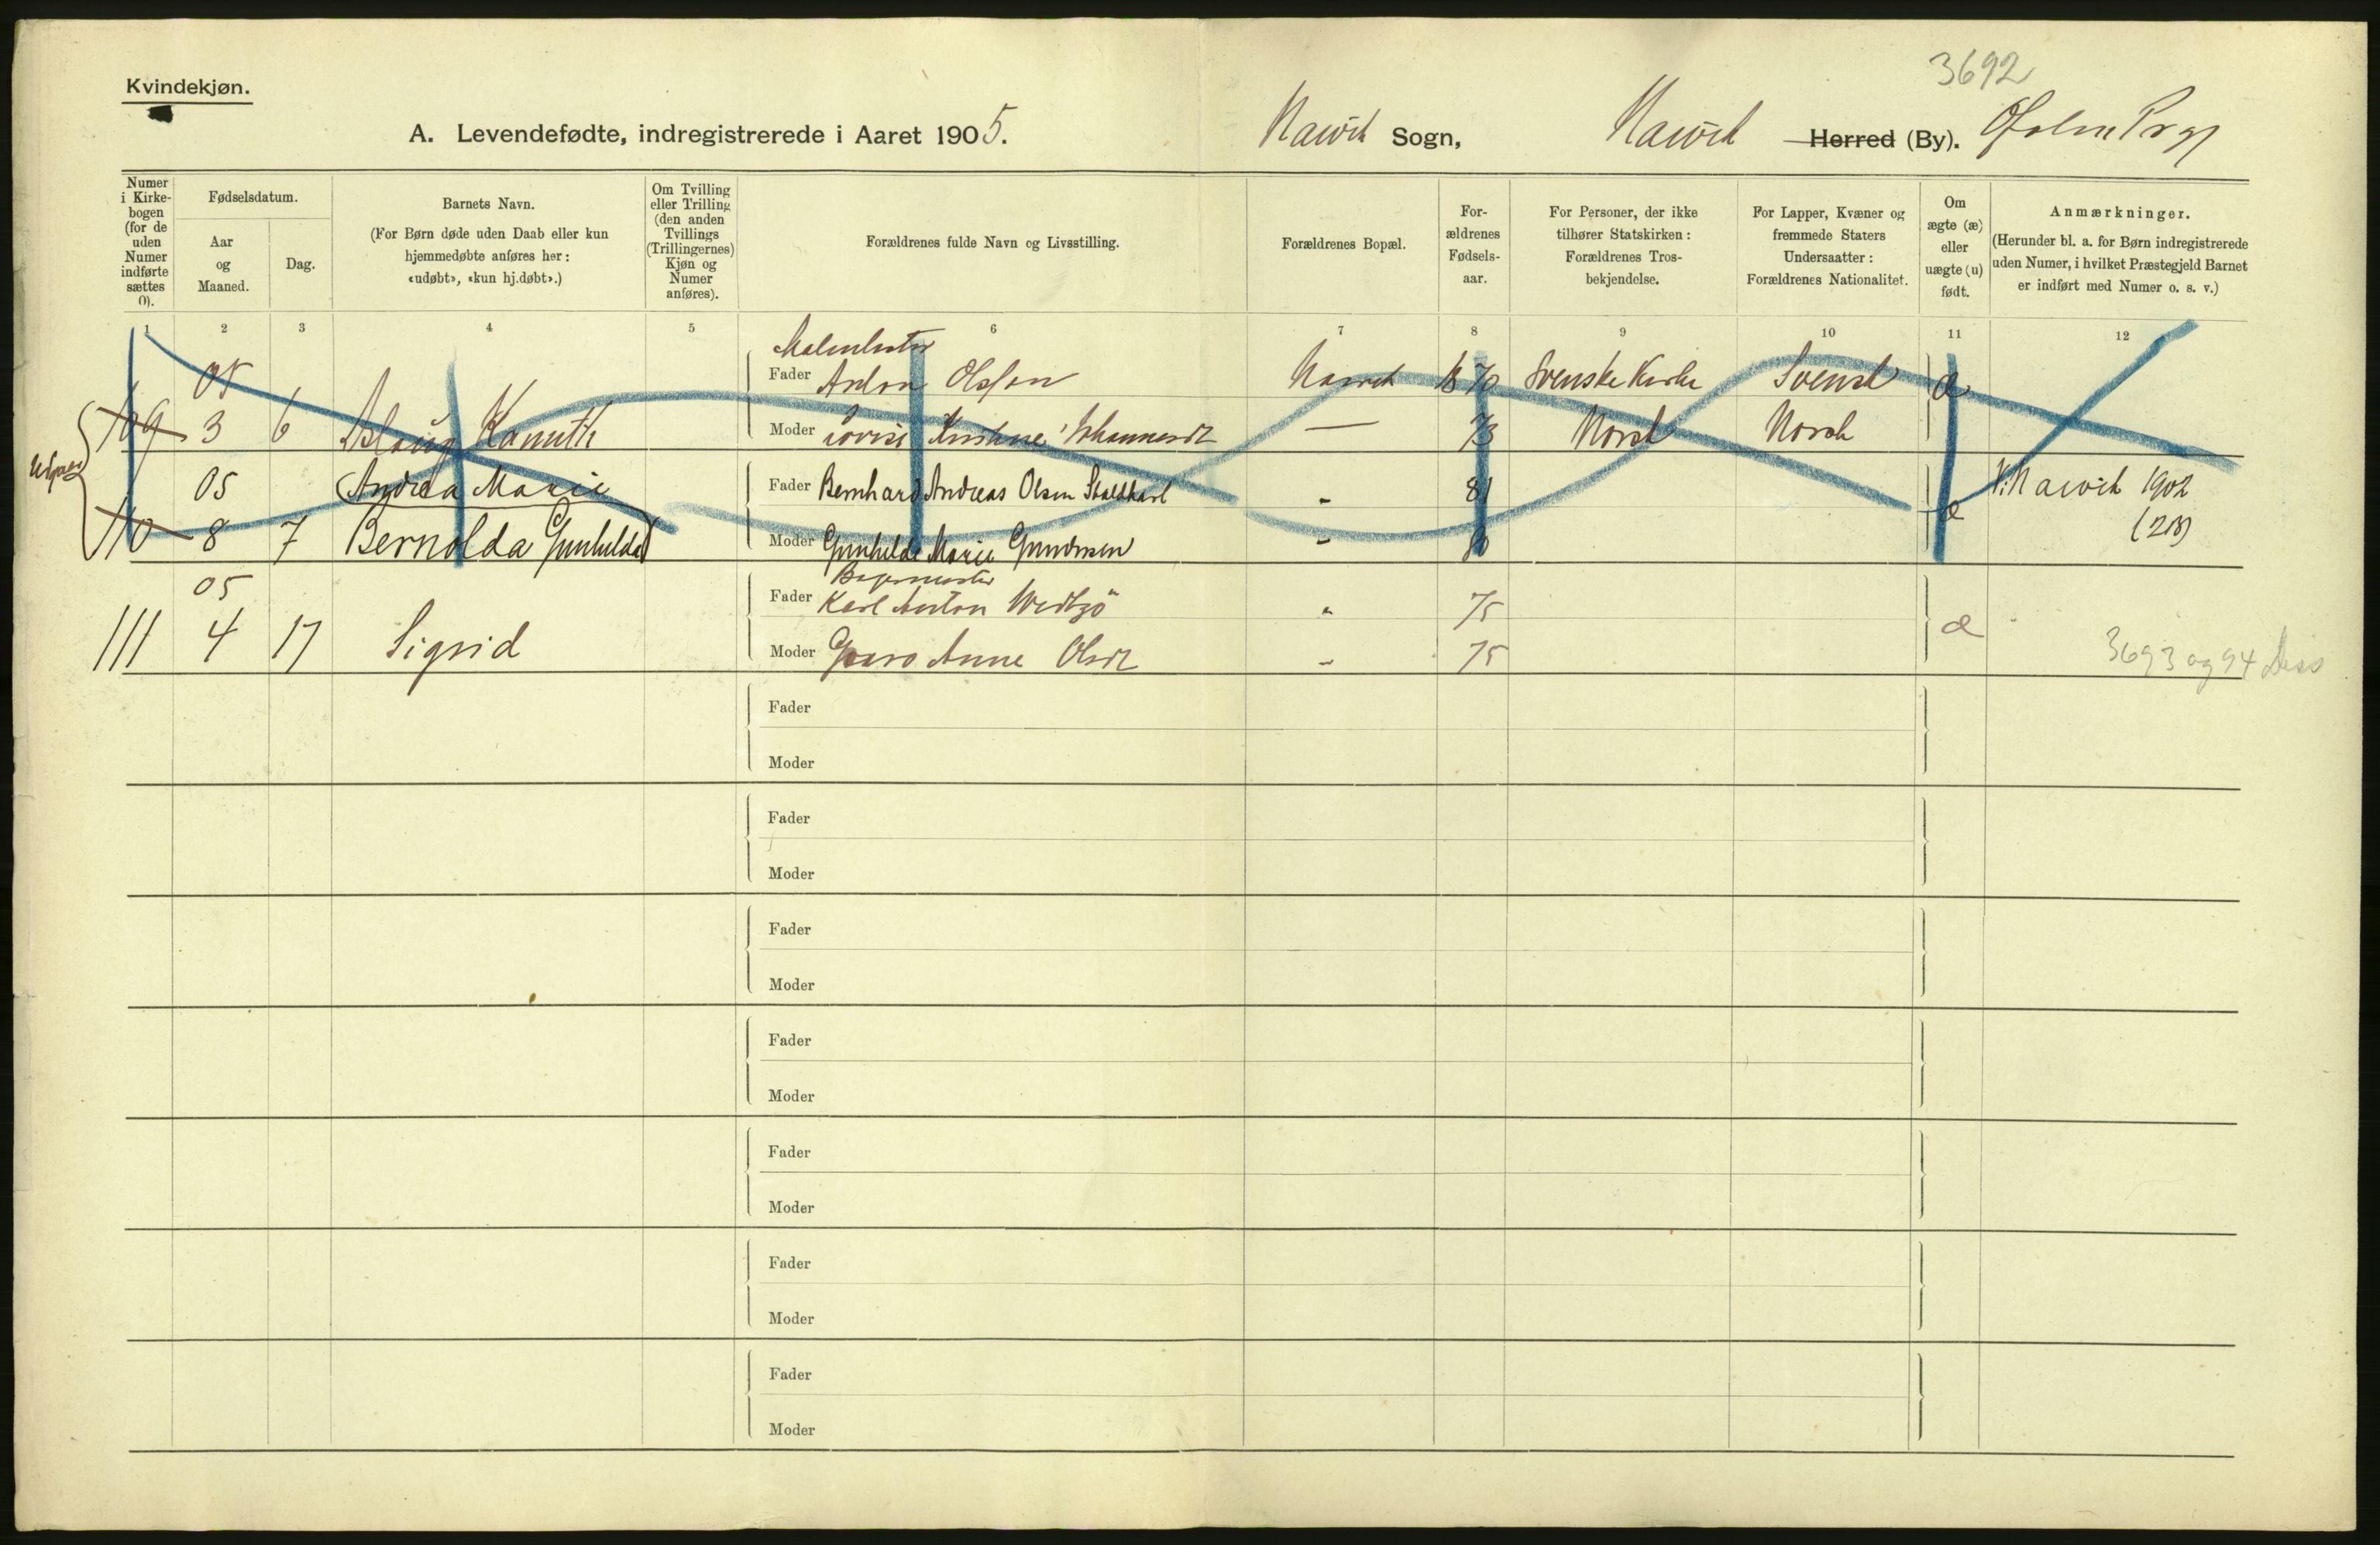 3692
Kvindekjøn.
A. Levendefødte, indregistrerede i Aaret 1905. Narvik Sogn, Narvik Herred (By). Ofoten Prgj
Numer i Kirkebogen (for de uden Numer indførte sættes 0).
Fødselsdatum.
Aar og Maaned.
Dag.
Barnets Navn.
(For Børn døde uden Daab eller kun hjemmedøbte anføres her: «udøbt», «kun hj.døbt».)
Om Tvilling eller Trilling (den anden Tvillings (Trillingernes) Kjøn og Numer anføres).
Forældrenes fulde Navn og Livsstilling.
Forældrenes Bopæl.
Forældrenes Fødselsaar.
For Personer, der ikke tilhører Statskirken: Forældrenes Trosbekjendelse.
For Lapper, Kvæner og fremmede Staters Undersaatter: Forældrenes Nationalitet.
Om ægte (æ) eller uægte (u) født.
Anmærkninger.
(Herunder bl. a. for Børn indregistrerede uden Numer, i hvilket Præstegjeld Barnet er indført med Numer o. s. v.)
1 2 3 4 5 6 7 8 9 10 11 12
05
Fader Anton Olsson Narvik 1870 Svenske Kirke Svensk æ
109 3 6 Aslaug Kanuth
Moder Lovise Kristine Johannesdt — 73 Norsk Norsk
05 Andrea Marie
Fader Bernhard Andreas Olsen Staldkarl " 81 V: Narvik 1902
æ
110 8 7 Bernolda Gunhilda
Moder Gunhilde Marie Gundersen " 80 (218)
05 Bagermester
Fader Karl Anton Wedtzö " 75
111 4 17 Sigrid æ
Moder Guro Anne Olsdt " 75
3693 og 94
Fader
Moder
Fader
Moder
Fader
Moder
Fader
Moder
Fader
Moder
Fader
Moder
Fader
Moder